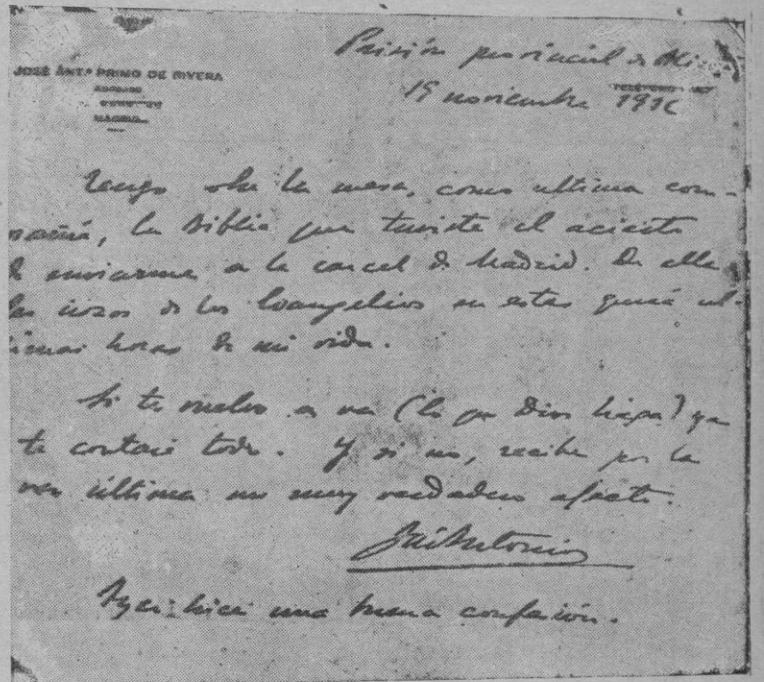 Prisión provincial de Ali-
JOSÉ ANTº PRIMO DE RIVERA
ABOGADO
MADRID
TELÉFONO
19 noviembre 1936
Tengo sobre la mesa, como ultima com-
pañía, la Biblia que tuviste el acierto
de enviarme a la carcel de Madrid. De ella
leo trozos de los Evangelios en estas quizá úl-
timas horas de mi vida.
Si te vuelvo a ver (lo que Dios haga) ya
te contaré todo. Y si no, recibe por la
vez última un muy verdadero afecto.
José Antonio
Ayer hice una buena confesión.